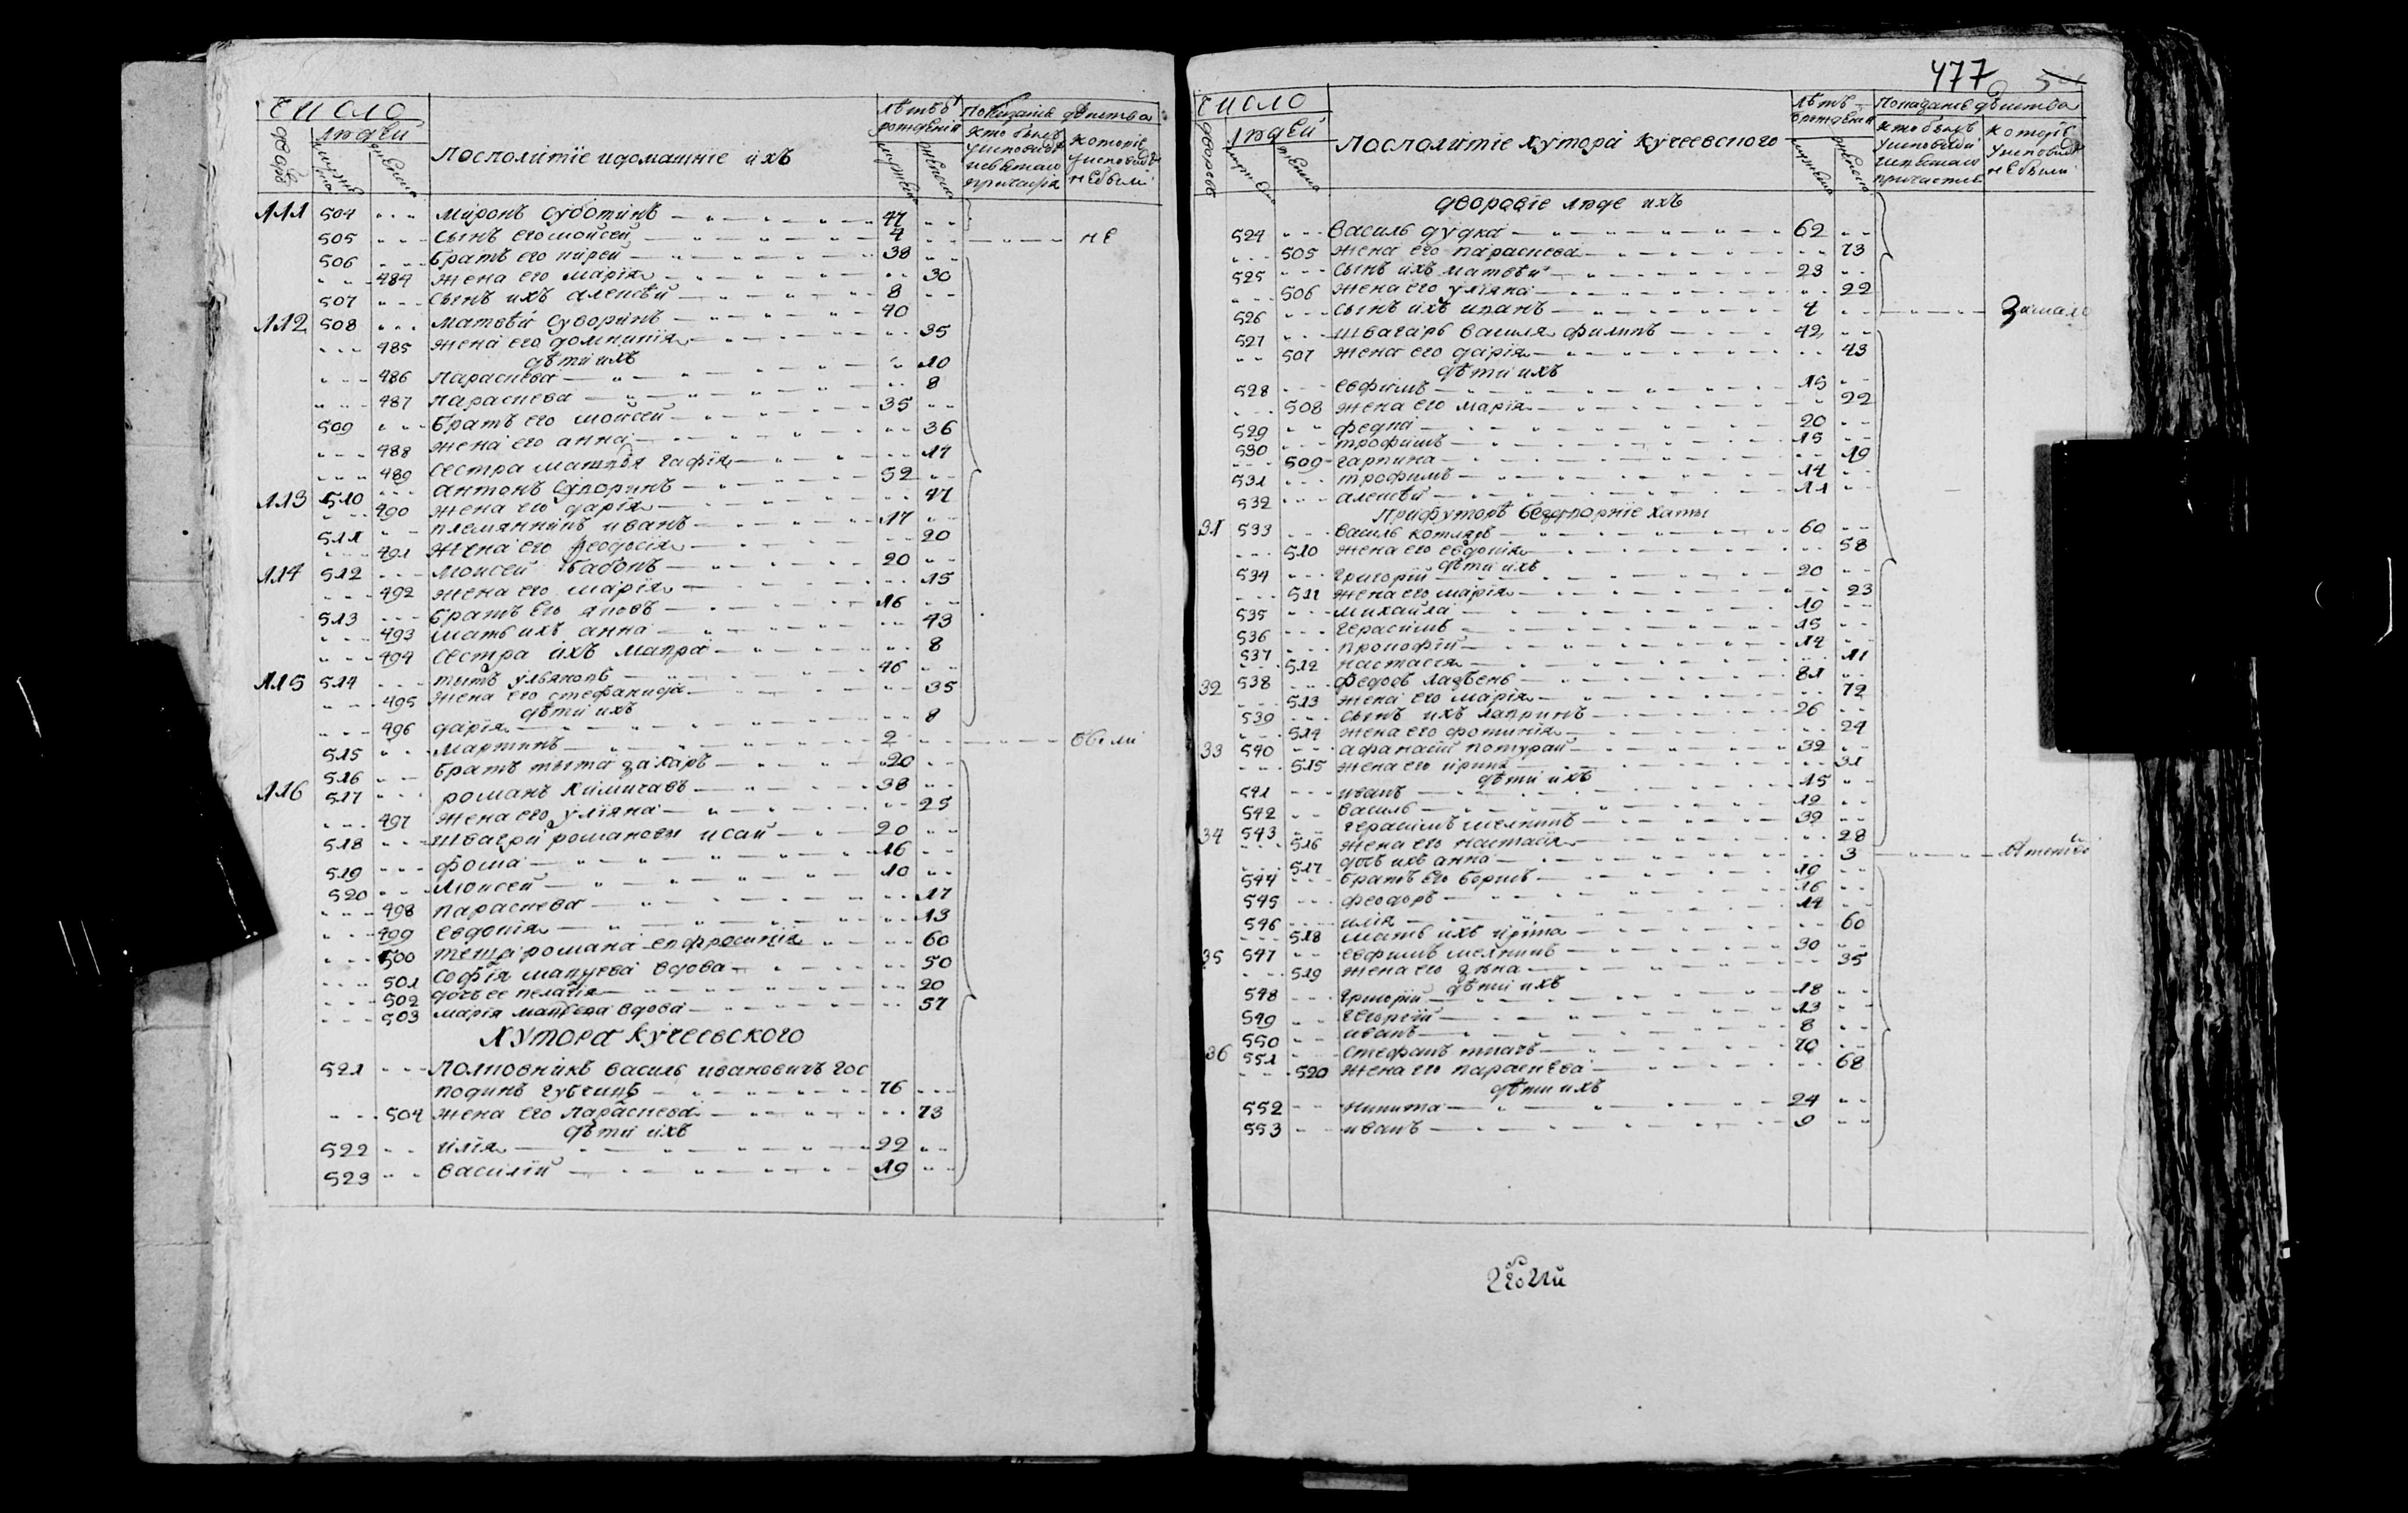 число
дворовъ
людей
мужеска
женска
посполитіе идомашніе ихъ
лѣтъ от рожденія
мужеска
женска
показаніе действа
кто былъ у исповеди исвятаго причастія
которіе у исповеди не были
111 504 миронъ суботинъ 47
505 сынъ его мойсей 4 не
506 братъ его кирей 38
484 жена его марія 30
507 сынъ ихъ алексѣй 8
112 508 матвѣй суворинъ 40
485 жена его домникія 35
дѣти ихъ
486 параскева 10
487 параскева 8
509 братъ его моисей 35
488 жена его анна 36
489 сестра матвея гафія 14
113 510 антонъ 52
490 жена его дарія 47
511 племянникъ иванъ 17
491 жена его феодосія 20
114 512 моисей бабокъ 20
492 жена его марія 15
513 братъ его яковъ 16
493 мать ихъ анна 43
494 сестра ихъ мавра 8
115 514 титъ 46
495 жена его стефанида 35
дѣти ихъ
496 дарія 8
515 мартинъ 2 были
516 братъ тыта захаръ 20
116 517 романъ 38
497 жена его уліяна 25
518 швагри романови исай 20
519 фома 16
520 моисей 10
498 параскева 17
499 евдокія 13
500 теща романа ефросинія 60
501 софія вдова 50
502 дочъ ее пелагія 20
503 марія вдова 57
хутора кучеевского
521 полковникъ василь ивановичъ гос
подинъ гудчицъ 76
504 жена его параскева 73
дѣти ихъ
522 илія 22
523 василій 19
477
число
дворовъ
людей
мужеска
женска
посполитіе хутора кучеевского
лѣтъ от рожденія
мужеска
женска
показаніе дѣйства
кто былъ у исповеди исвятаго причастія
которіе у исповеди не были
дворовіе люде ихъ
524 василь дудка 62
505 жена его параскева 73
525 сынъ ихъ матвѣй 23
506 жена его уліяна 22
526 сынъ ихъ иванъ 4 замало
527 швагаръ василя филипъ 42
507 жена его дарія 43
дѣти ихъ
528 евфимъ 15
508 жена его марія 22
529 федка 20
530 трофимъ 15
509 гарпина 19
531 трофимъ 14
532 алексѣй 11
прифуторѣ бездворніе хаты
31 533 василь котляръ 60
510 жена его евдокія 58
дѣти ихъ
534 григорій 20
511 жена его марія 23
535 михайла 19
536 герасимъ 15
537 прокофій 14
512 настасія 11
32 538 федоръ 81
513 жена его марія 72
539 сынъ ихъ лавринъ 26
514 жена его фотинія 24
33 540 афанасій потурай 32
515 жена его ирина 31
дѣти ихъ
541 иванъ 15
542 василь 12
34 543 герасимъ мелникъ 32
516 жена его настасія 28
517 дочъ ихъ анна 3 лѣтство
544 братъ его борисъ 19
545 феодоръ 16
546 илія 14
518 мать ихъ ирина 60
35 547 евфимъ мелникъ 30
519 жена его 35
дѣти ихъ
548 григорій 18
549 георгій 13
550 иванъ 8
36 551 стефанъ ткачъ 70
520 жена его параскева 68
дѣти ихъ
552 никита 24
553 иванъ 9